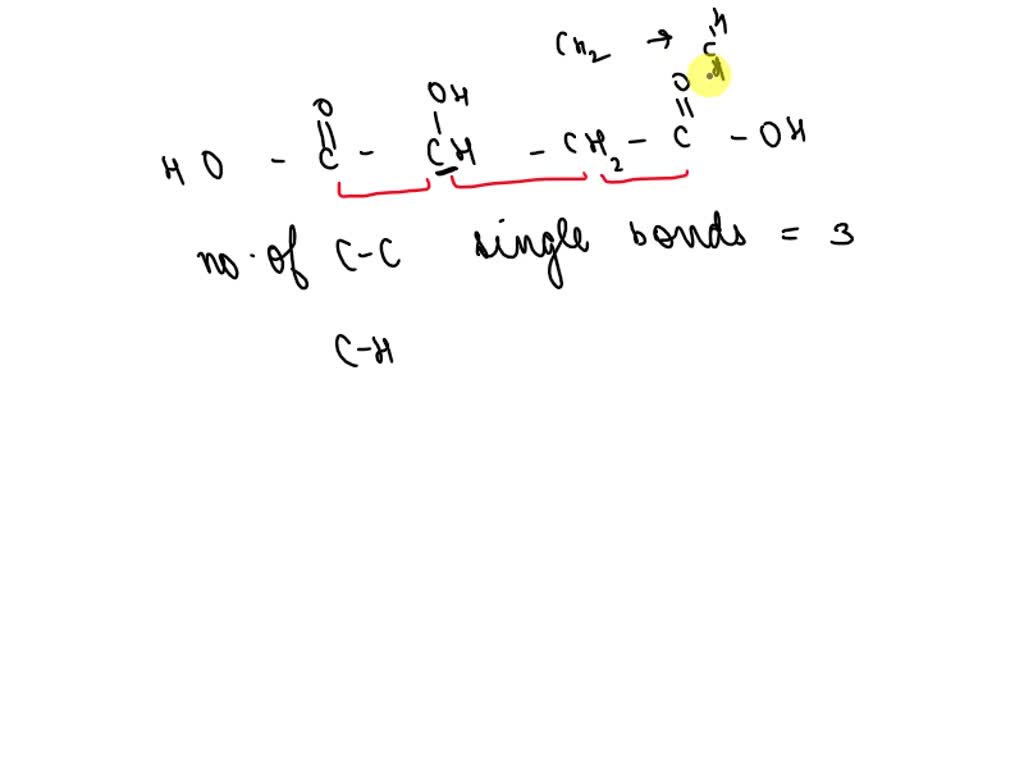 CH2 → C H H
O OH O
HO - C - CH - CH2 - C - OH
no. of C-C single bonds = 3
C-H